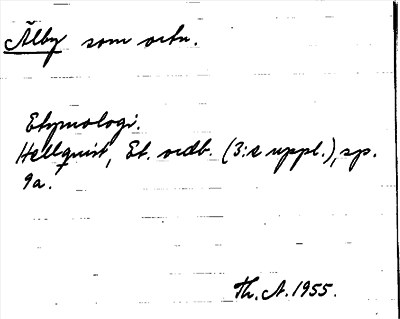 Älby som ortn.
Etymologi.
Hellquist, Et. ordb. (3:e uppl.), sp.
9a.
Th. A. 1955.